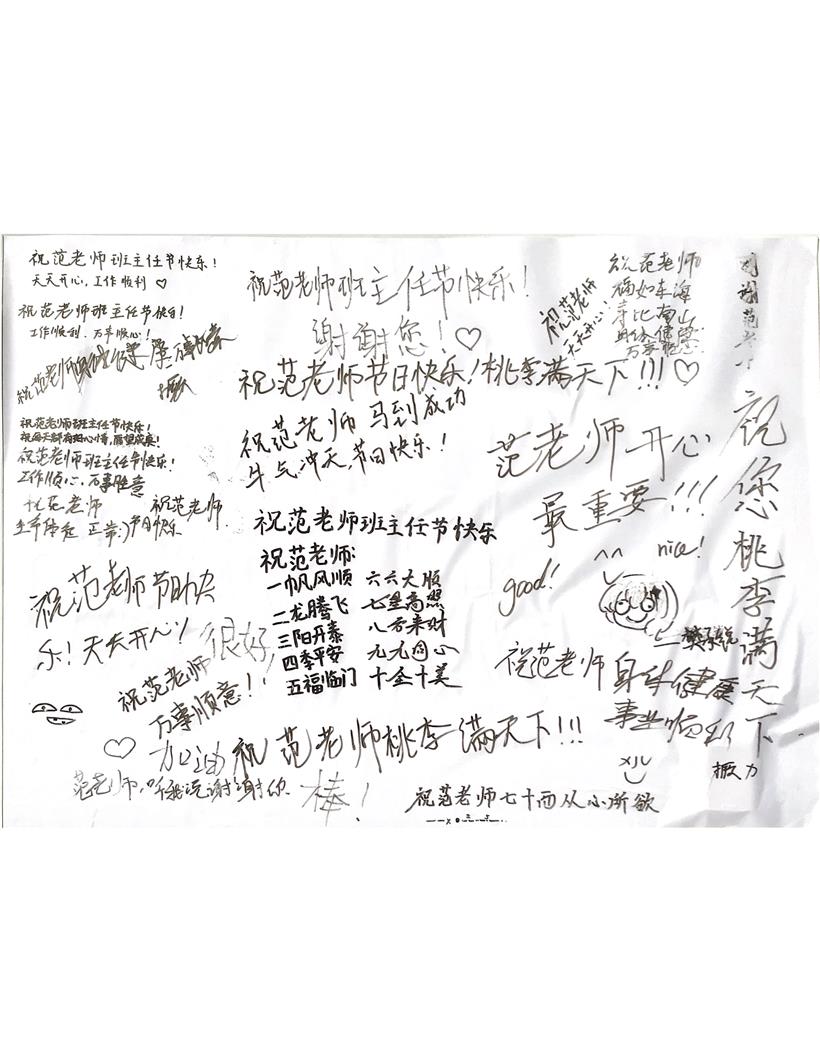 祝范老师班主任节快乐！
天天开心，工作顺利♡
祝范老师班主任节快乐！
工作顺利，万事顺心！
祝范老师
祝范老师班主任节快乐！
祝范老师班主任节快乐！
工作顺心，万事胜意
祝范老师
节日快乐
祝范老师节日快
乐！天天开心！
很好
祝范老师
万事顺意！
加油
范老师，听我说谢谢你
棒！
祝范老师班主任节快乐！
谢谢您！♡
祝范老师节日快乐！桃李满天下!!!♡
祝范老师 马到成功
牛气冲天，节日快乐！
祝范老师班主任节快乐
祝范老师：
一帆风顺 六六大顺
二龙腾飞 七星高照
三阳开泰 八方来财
四季平安 九九同心
五福临门 十全十美
祝范老师桃李满天下!!!
祝范老师七十而从心所欲
祝范老师
天天开心！
祝范老师
福如东海
寿比南山
身体健康
范老师开心
最重要!!!
good!
nice!
祝范老师身体健康
事业顺利
谢谢范老师
祝您桃李满天下